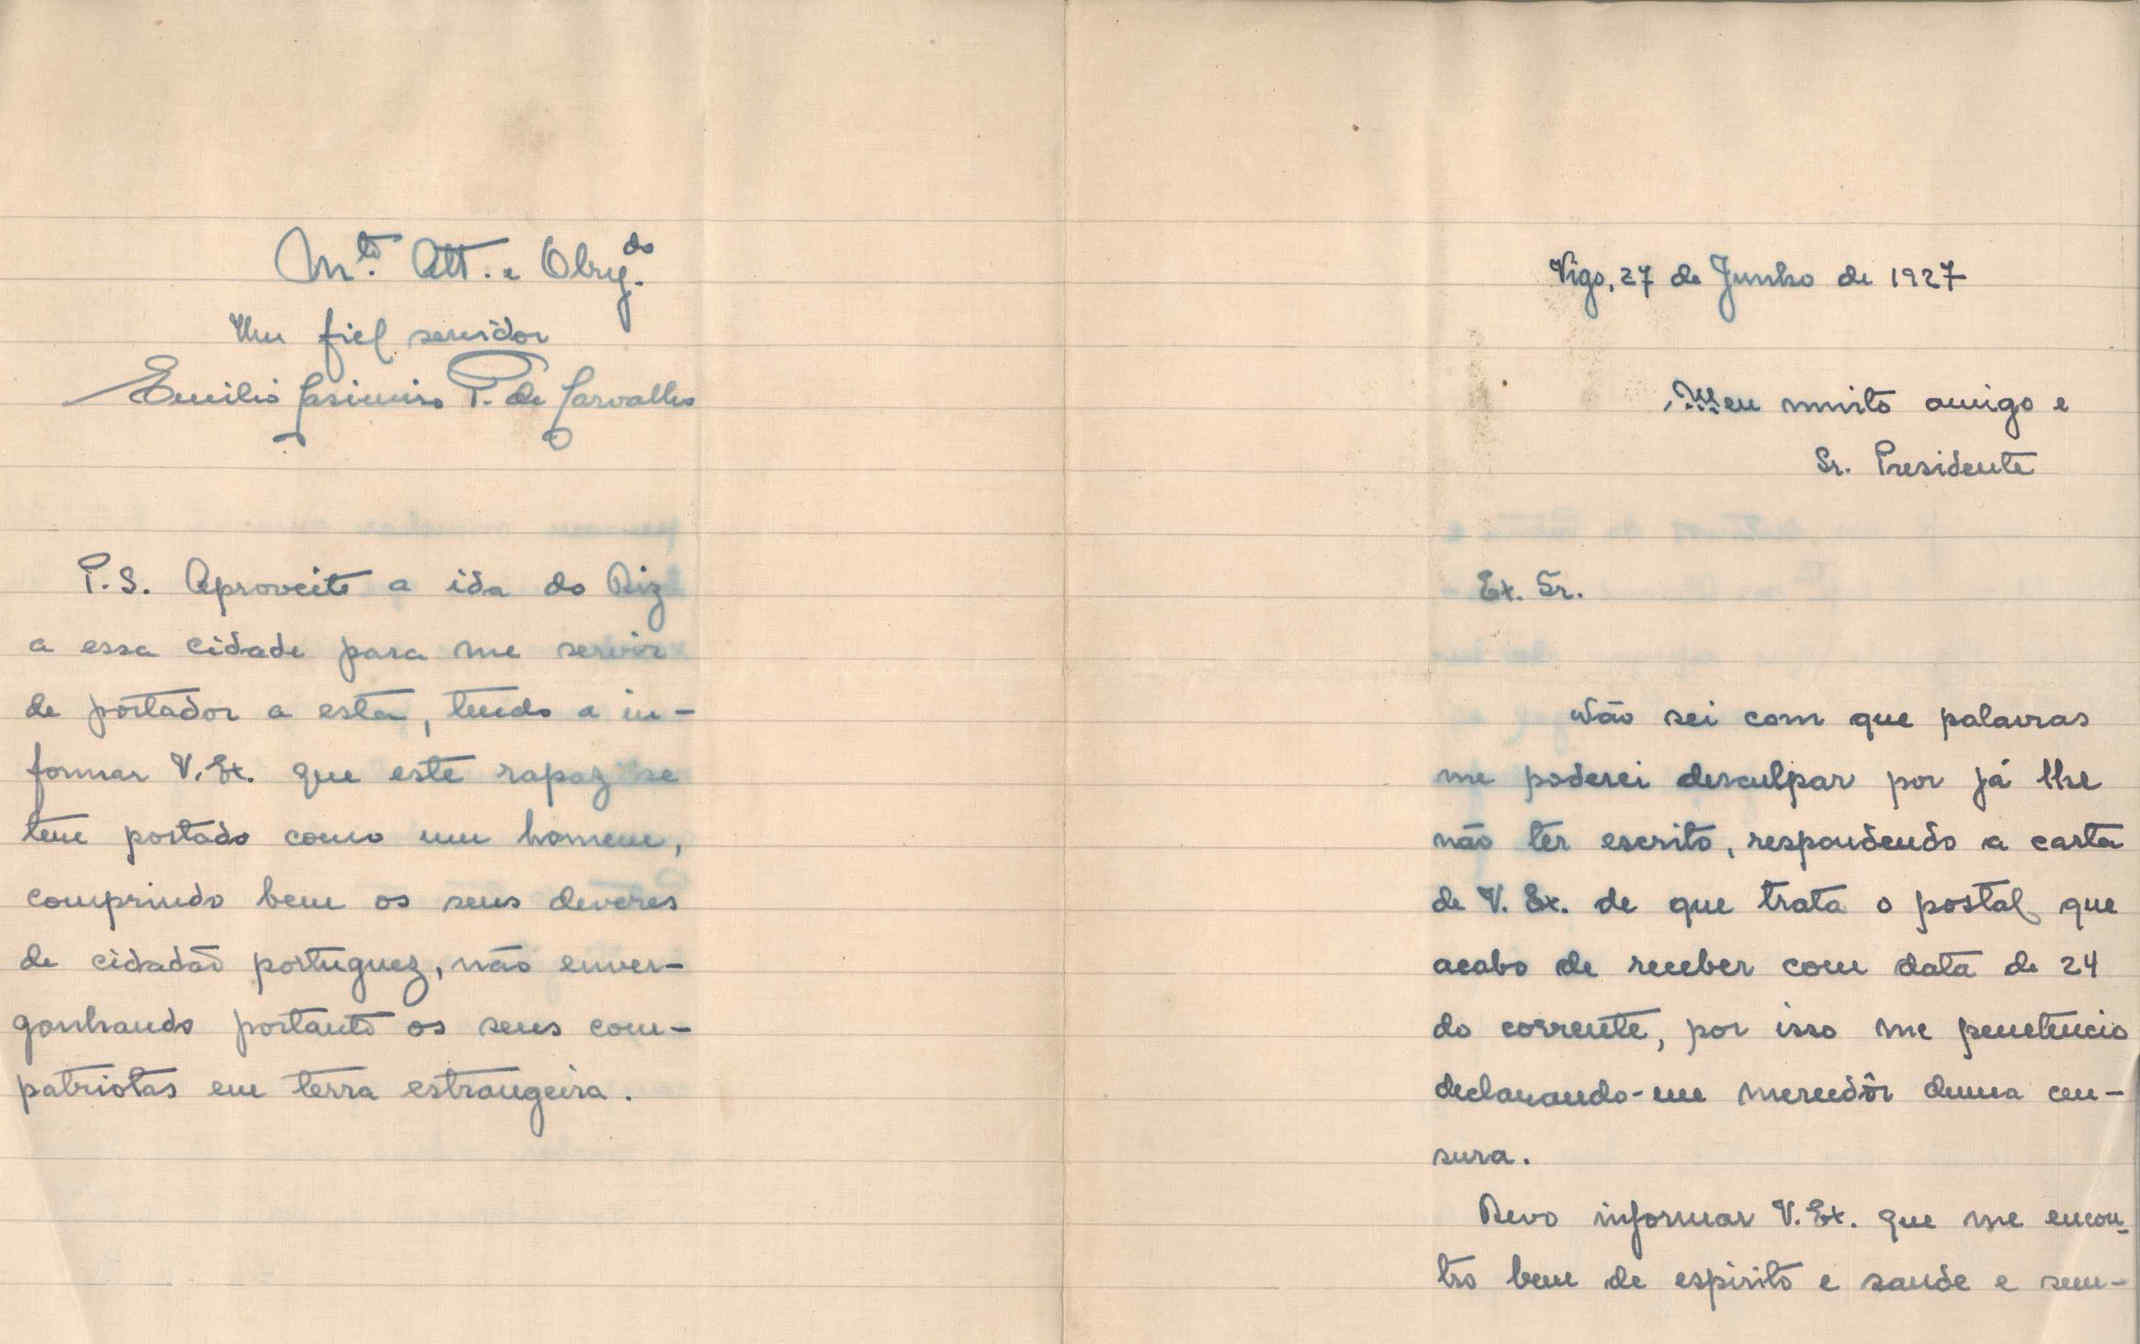 Vigo, 27 de Junho de 1927
Meu muito amigo e
Sr. Presidente
Ex. Sr.
Não sei com que palavras
me poderei desculpar por já lhe
não ter escrito, respondendo a carta
de V. Ex. de que trata o postal que
acabo de receber com data de 24
do corrente, por isso me penetencio
declarando-me merecedôr duma cen-
sura.
Devo informar V. Ex. que me encon-
tro bem de espirito e saude e sem-
Mto. Att. e Obrg.do
Um fiel servidor
Emilio Casimiro P. de Carvalho
P.S. Aproveito a ida do
a essa cidade para me servir
de portador a esta, tendo a in-
formar V. Ex. que este rapaz se
tem portado como um homem,
comprindo bem os seus deveres
de cidadão portuguez, não enver-
gonhando portanto os seus com-
patriotas em terra estrangeira.